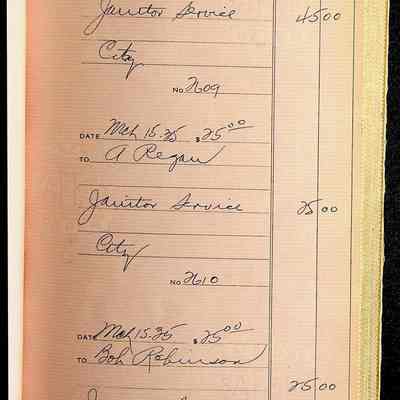 Janitor Service 45 00
City
No 2609
DATE Mch 15-35 $25 00
TO A Regan
Janitor Service 25 00
City
No 2610
DATE Mch 15-35 $25 00
TO Bob Robinson
25 00